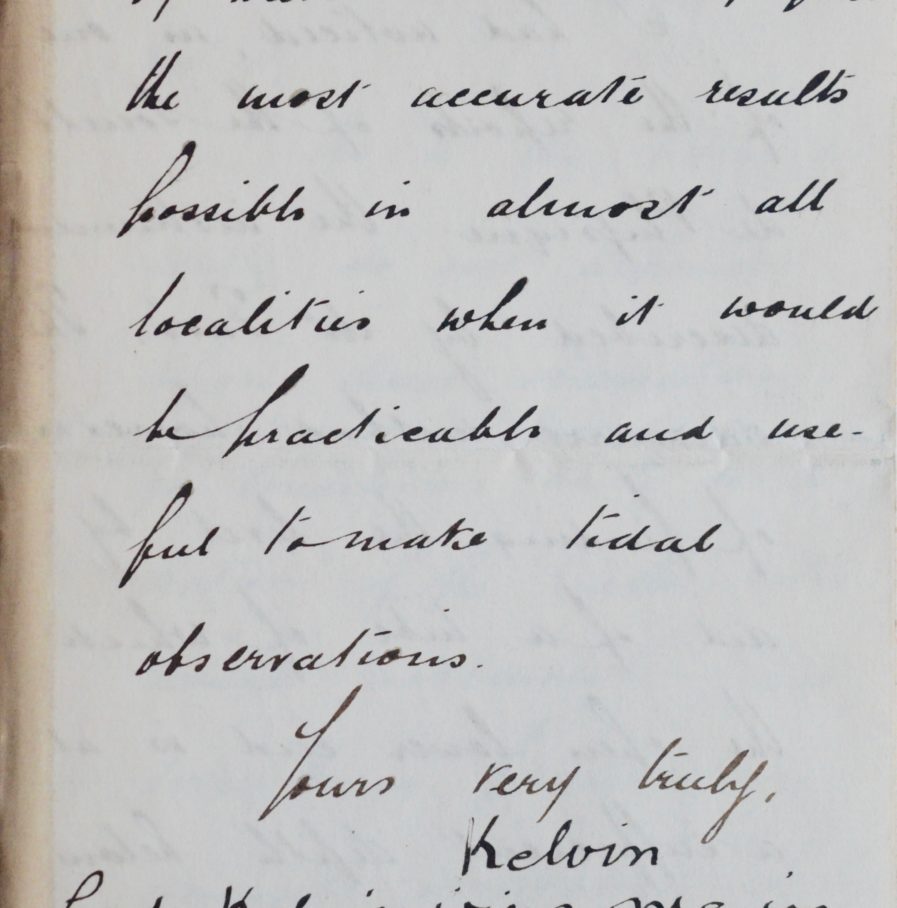 the most accurate results
possible in almost all
localities when it would
be practicable and use-
ful to make tidal
observations.
Yours very truly,
Kelvin